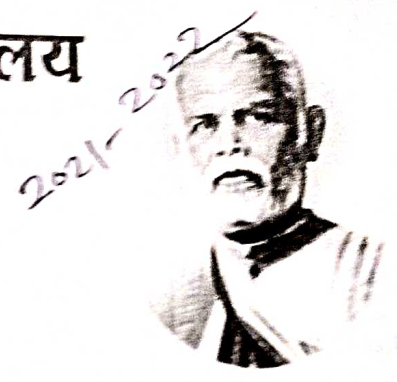 लय
2021-2022